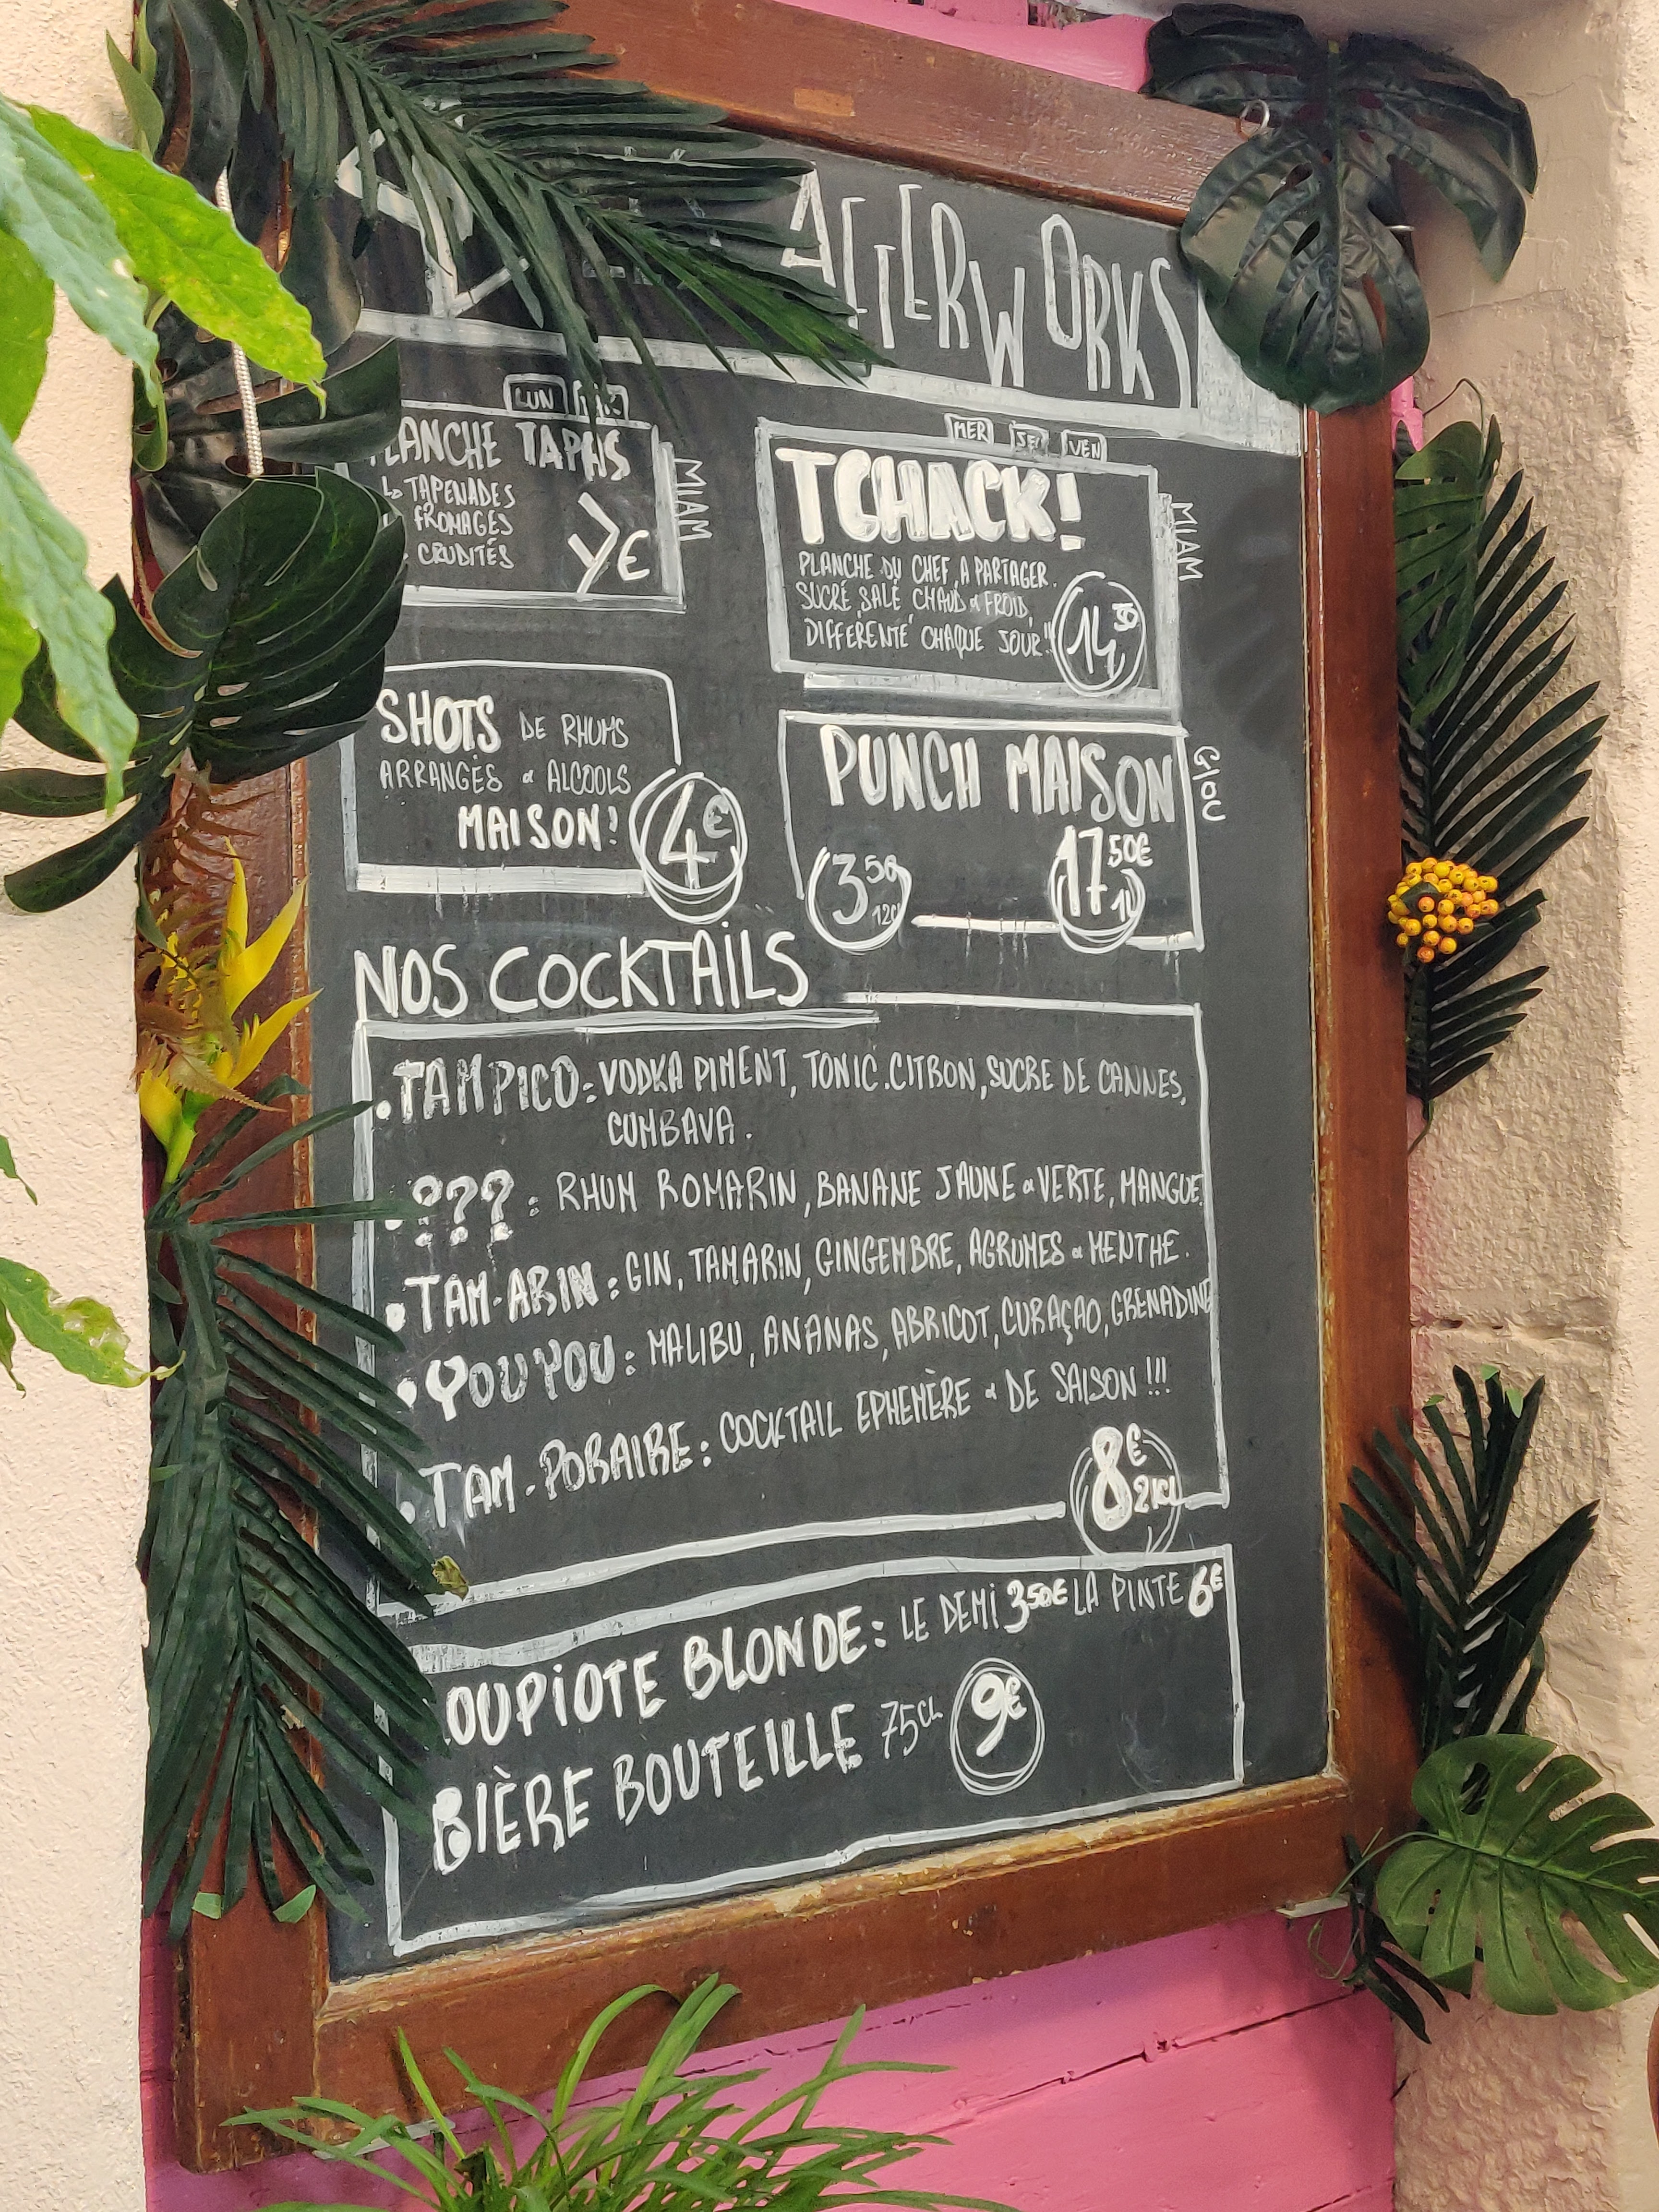 AFTERWORKS
LUN MAR
PLANCHE TAPAS
TAPENADES
FROMAGES
CRUDITÉS
7€
MIAM
MER JEU VEN
TCHACK!
PLANCHE DU CHEF, A PARTAGER.
SUCRÉ, SALÉ CHAUD & FROID,
DIFFERENTE CHAQUE JOUR!!
14,50
MIAM
SHOTS DE RHUMS
ARRANGÉS & ALCOOLS
MAISON!
4€
PUNCH MAISON
3,50 12CL
17,50€ 1L
GLOU
NOS COCKTAILS
• TAMPICO: VODKA PIMENT, TONIC.CITRON, SUCRE DE CANNES,
CUMBAVA.
• ???: RHUM ROMARIN, BANANE JAUNE & VERTE, MANGUE
• TAM-ARIN: GIN, TAMARIN, GINGEMBRE, AGRUMES & MENTHE.
• YOUYOU: MALIBU, ANANAS, ABRICOT, CURAÇAO, GRENADINE
• TAM-PORAIRE: COCKTAIL EPHEMÈRE & DE SAISON!!!
8€ 21CL
LOUPIOTE BLONDE: LE DEMI 3,50€ LA PINTE 6€
BIÈRE BOUTEILLE 75CL 9€